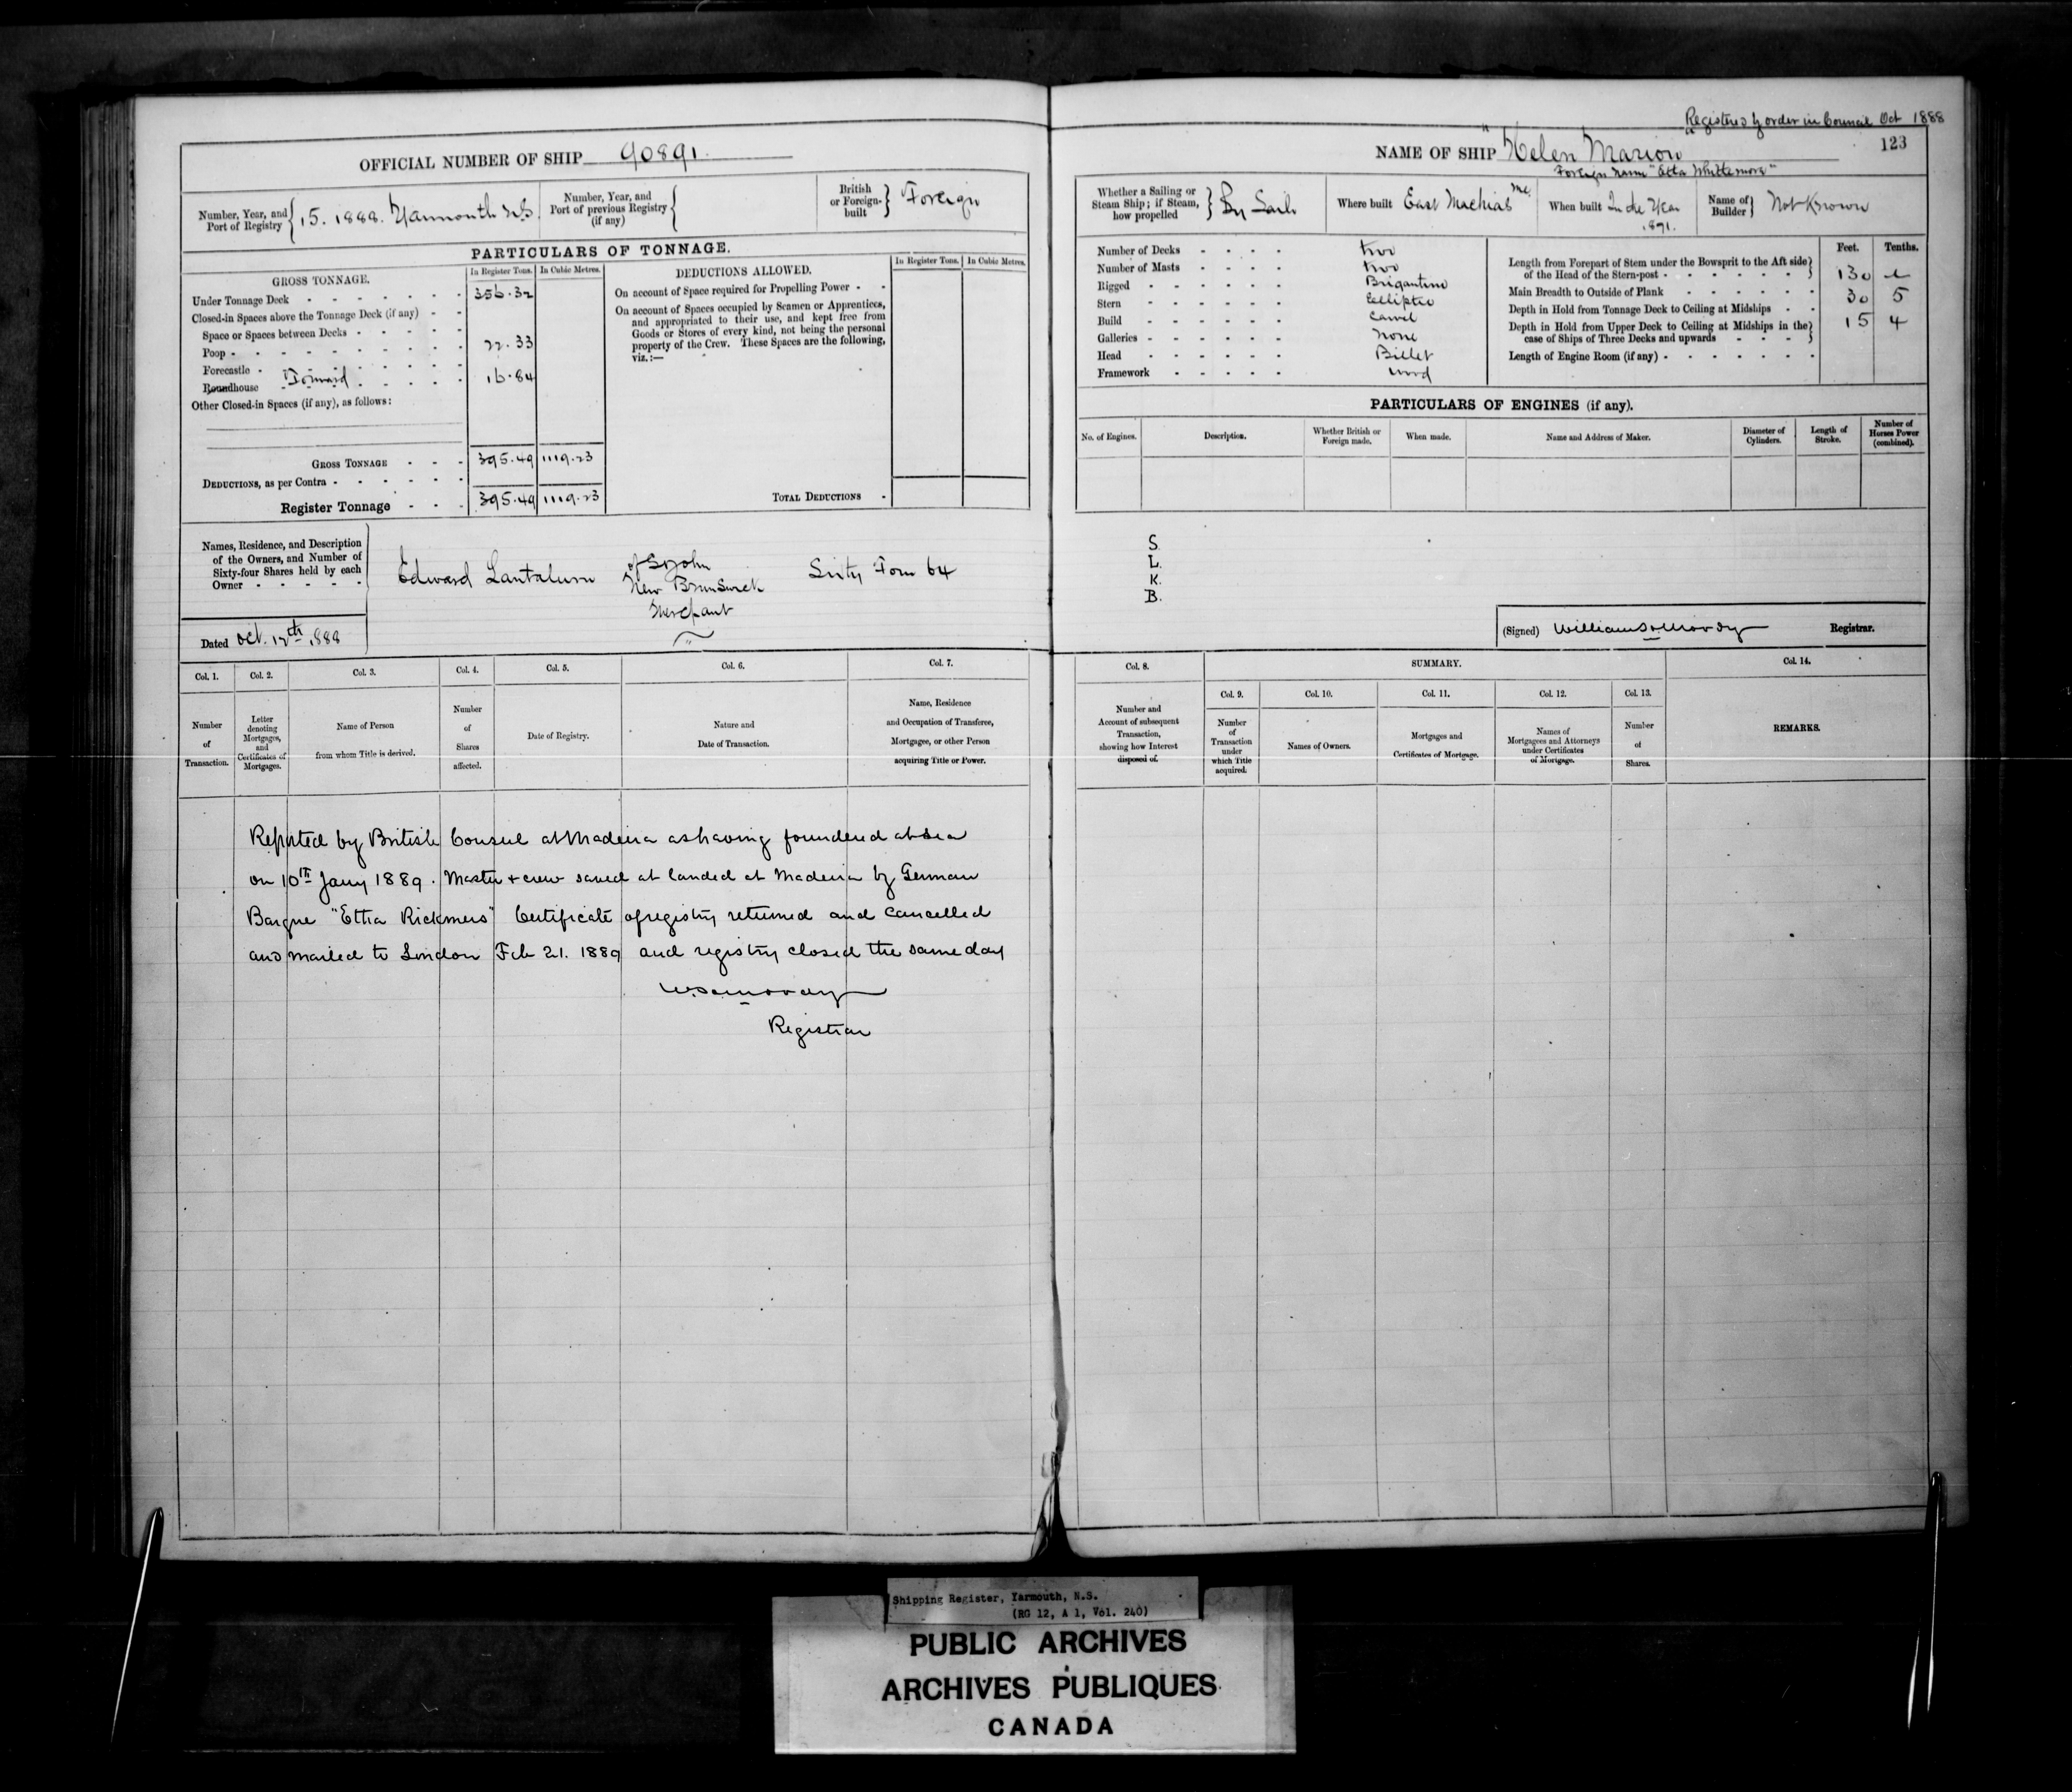 Registered by order in Council Oct 1888
OFFICIAL NUMBER OF SHIP 90891.
NAME OF SHIP "Helen Marion"
123
Foreign name "Etta Whittemore"
Number, Year, and Port of Registry 15. 1888. Yarmouth N.S.
Number, Year, and Port of previous Registry (if any)
British or Foreign-built Foreign
Whether a Sailing or Steam Ship; if Steam, how propelled By Sail
Where built East Machias Me
When built In the Year 1871.
Name of Builder Not Known
PARTICULARS OF TONNAGE.
GROSS TONNAGE.
In Register Tons.
In Cubic Metres.
Under Tonnage Deck 356.32
Closed-in Spaces above the Tonnage Deck (if any)
Space or Spaces between Decks
Poop 22.33
Forecastle
Roundhouse Forward 16.84
Other Closed-in Spaces (if any), as follows:
GROSS TONNAGE 395.49 1119.23
DEDUCTIONS, as per Contra
Register Tonnage 395.49 1119.23
DEDUCTIONS ALLOWED.
In Register Tons.
In Cubic Metres.
On account of Space required for Propelling Power
On account of Spaces occupied by Seamen or Apprentices,
and appropriated to their use, and kept free from
Goods or Stores of every kind, not being the personal
property of the Crew. These Spaces are the following,
viz.:—
TOTAL DEDUCTIONS
Number of Decks two
Number of Masts two
Rigged Brigantine
Stern Elliptic
Build Carvel
Galleries None
Head Billet
Framework wood
Feet. Tenths.
Length from Forepart of Stem under the Bowsprit to the Aft side
of the Head of the Stern-post 130
Main Breadth to Outside of Plank 30 5
Depth in Hold from Tonnage Deck to Ceiling at Midships 15 4
Depth in Hold from Upper Deck to Ceiling at Midships in the
case of Ships of Three Decks and upwards
Length of Engine Room (if any)
PARTICULARS OF ENGINES (if any).
No. of Engines.
Description.
Whether British or Foreign made.
When made.
Name and Address of Maker.
Diameter of Cylinders.
Length of Stroke.
Number of Horses Power (combined).
Names, Residence, and Description
of the Owners, and Number of
Sixty-four Shares held by each
Owner
Edward Lantalum of St John
New Brunswick
Merchant
Sixty Four 64
S.
L.
K.
B.
Dated Oct. 12th 1888
(Signed) William S. Moody Registrar.
Col. 1. Number of Transaction.
Col. 2. Letter denoting Mortgages, and Certificates of Mortgages.
Col. 3. Name of Person from whom Title is derived.
Col. 4. Number of Shares affected.
Col. 5. Date of Registry.
Col. 6. Nature and Date of Transaction.
Col. 7. Name, Residence and Occupation of Transferee, Mortgagee, or other Person acquiring Title or Power.
Col. 8. Number and Account of subsequent Transaction, showing how Interest disposed of.
SUMMARY.
Col. 9. Number of Transaction under which Title acquired.
Col. 10. Names of Owners.
Col. 11. Mortgages and Certificates of Mortgage.
Col. 12. Names of Mortgagees and Attorneys under Certificates of Mortgage.
Col. 13. Number of Shares.
Col. 14. REMARKS.
Reported by British Consul at Madeira as having foundered at sea
on 10th Jany 1889. Master & crew saved at landed at Madeira by German
Barque "Etha Rickmers" Certificate of registry returned and cancelled
and mailed to London Feb 21. 1889 and registry closed the same day
W. S. Moody
Registrar
Shipping Register, Yarmouth, N.S.
(RG 12, A 1, Vol. 240)
PUBLIC ARCHIVES
ARCHIVES PUBLIQUES
CANADA